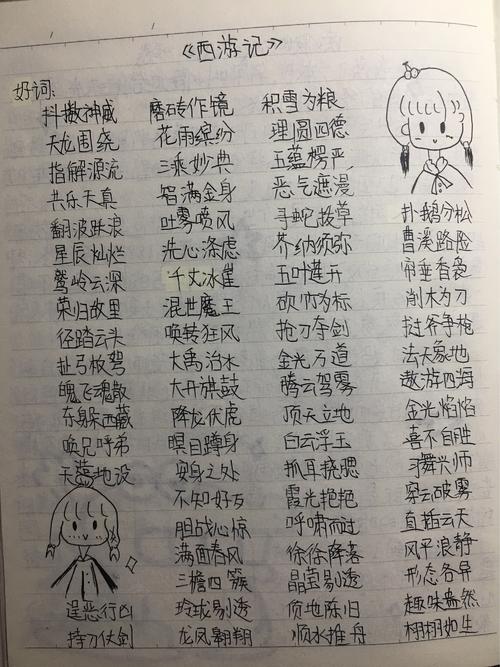 《西游记》
好词:
抖擞神威 磨砖作镜 积雪为粮
天龙围绕 花雨缤纷 理圆四德
指解源流 三乘妙典 五蕴楞严
共乐天真 智满金身 恶气遮漫
翻波跃浪 吐雾喷风 寻蛇拨草 扑鹅分松
星辰灿烂 洗心涤虑 芥纳须弥 曹溪路险
鹫岭云深 千丈冰崖 五叶莲开 帘垂香袅
荣归故里 混世魔王 砍竹为标 削木为刀
径踏云头 唤转狂风 抢刀夺剑 挝斧争枪
扯弓扳弩 大禹治水 金光万道 法天象地
魄飞魂散 大开旗鼓 腾云驾雾 遨游四海
东躲西藏 降龙伏虎 顶天立地 金光焰焰
唤兄呼弟 瞑目蹲身 白云浮玉 喜不自胜
天荒地没 安身之处 抓耳挠腮 习舞兴师
不知好歹 霞光艳艳 穿云破雾
胆战心惊 呼啸而过 直插云天
满面春风 徐徐降落 风平浪静
三檐四簇 晶莹剔透 形态各异
逞恶行凶 玲珑剔透 陈旧 趣味盎然
持刀仗剑 龙凤翱翔 顺水推舟 栩栩如生